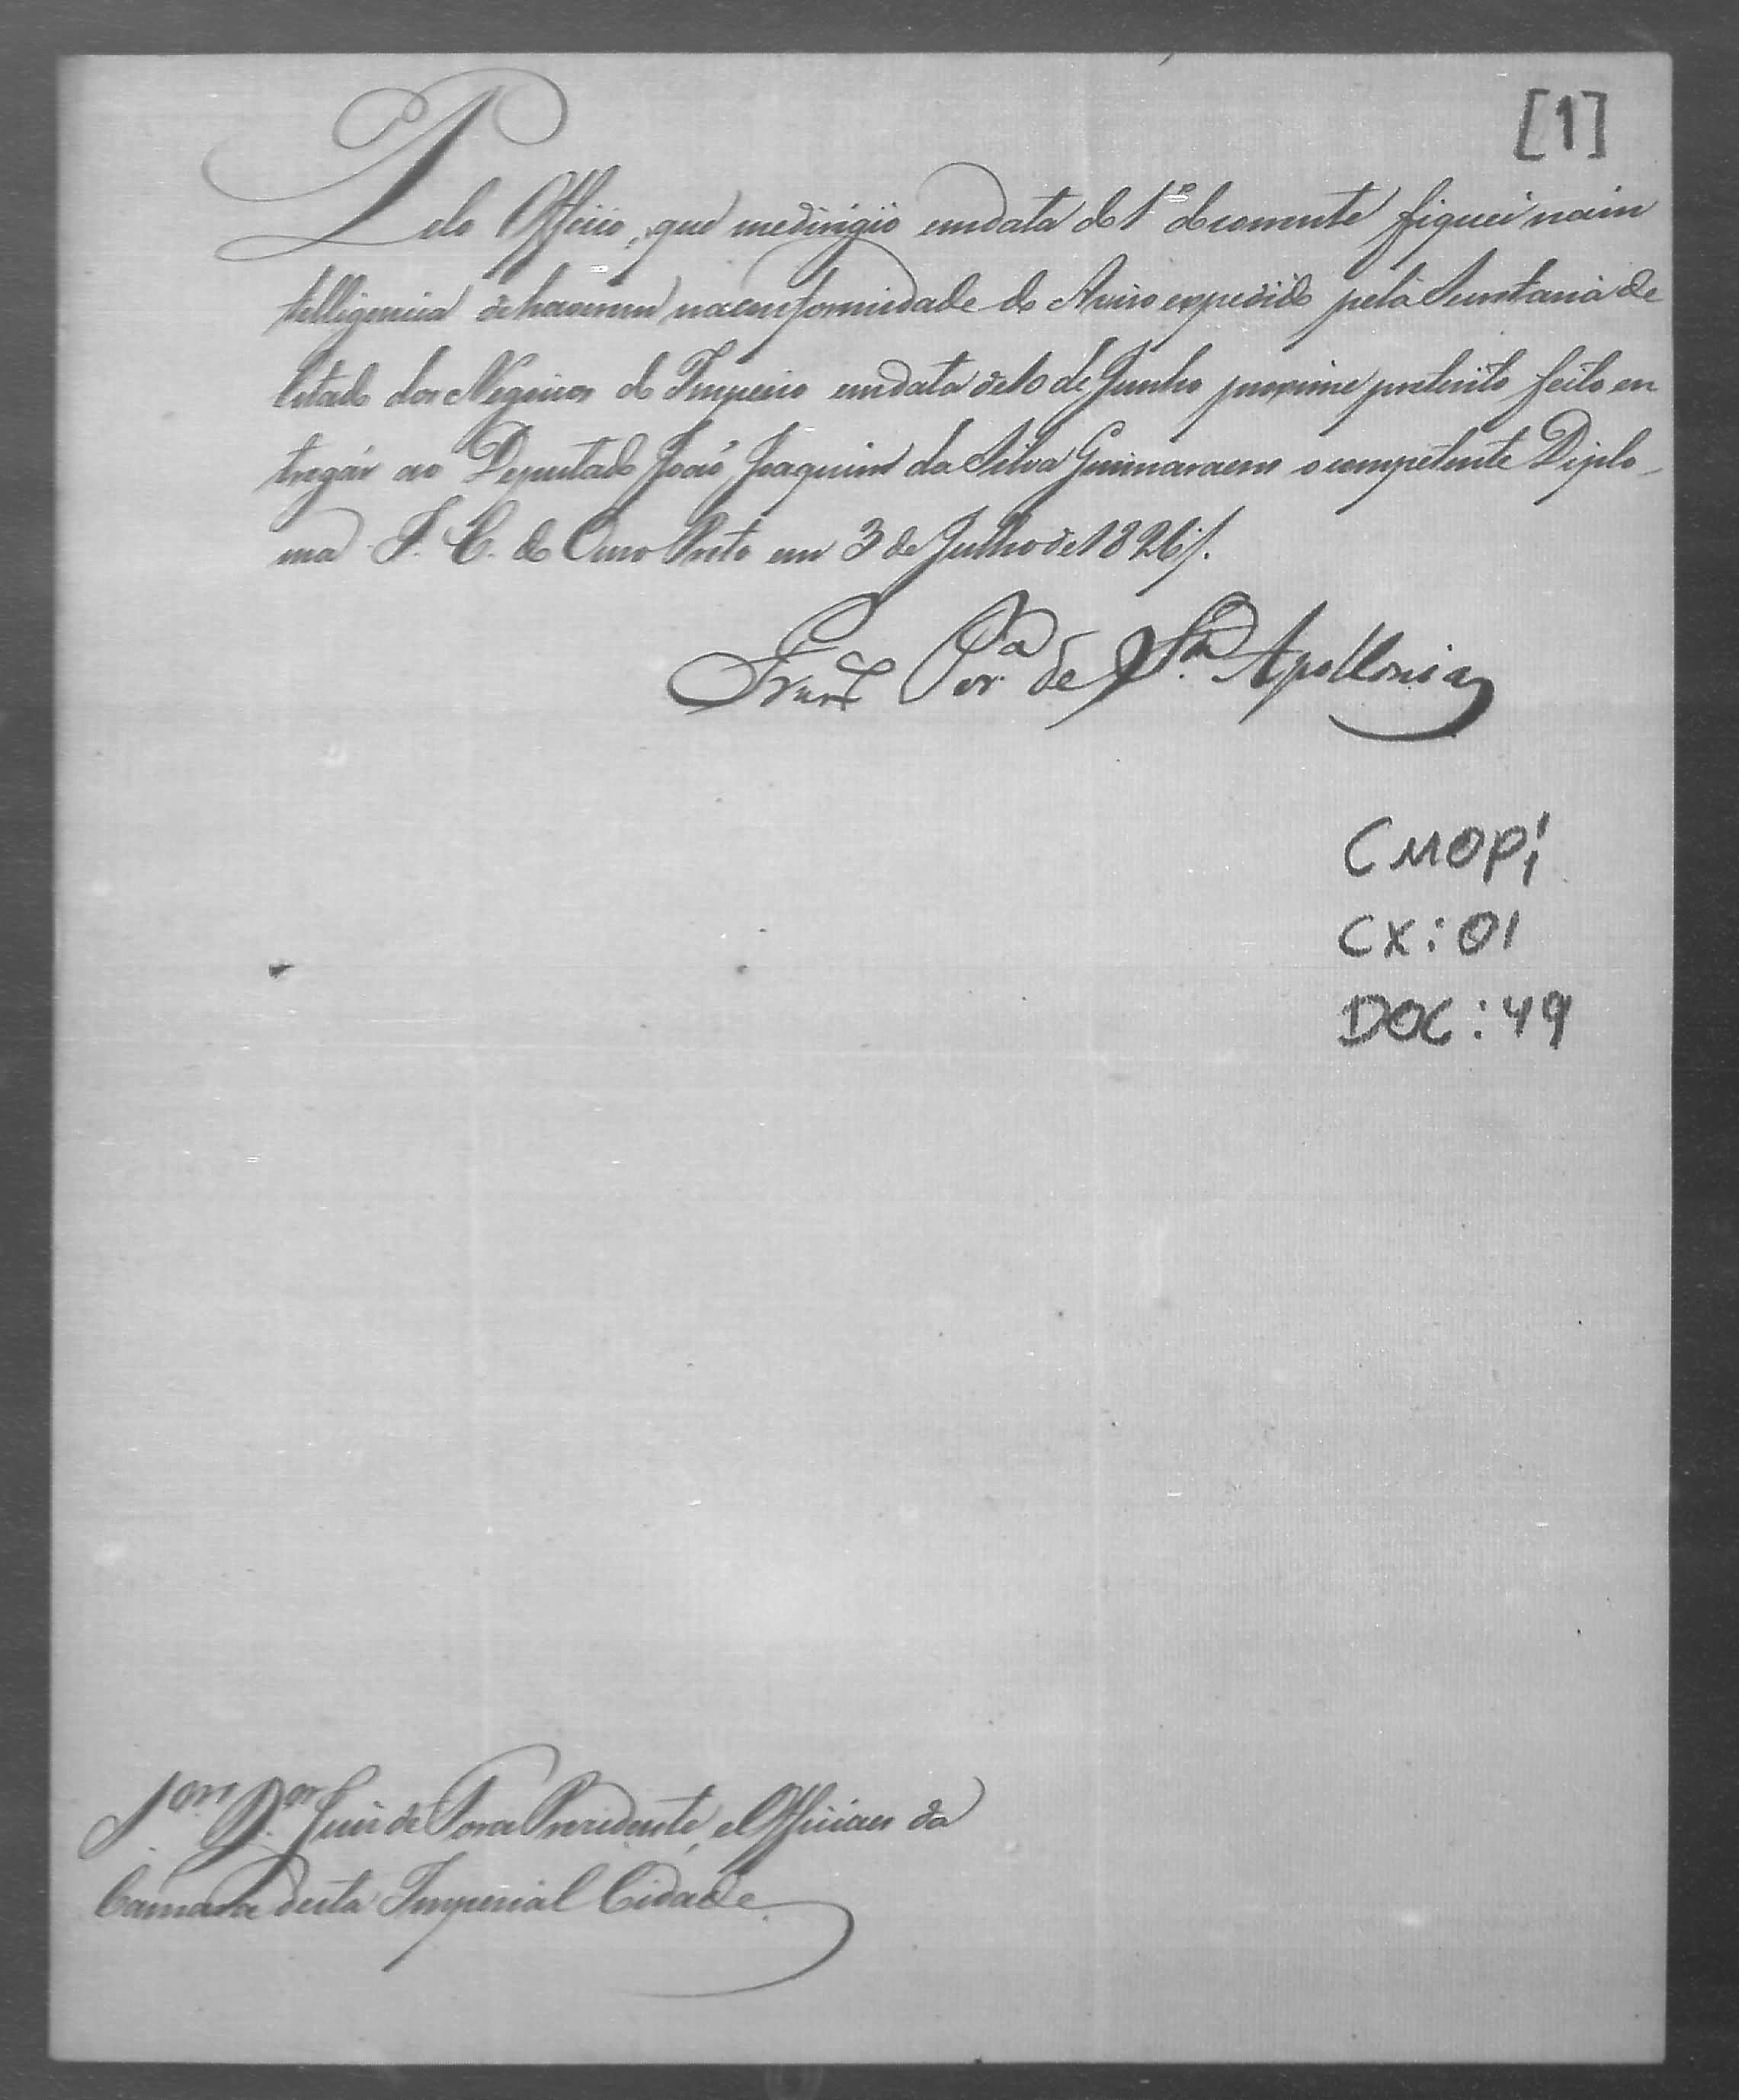 [1]
Pelo Officio, que me dirigio em data do 1º do corrente fiquei na in
telligencia de haverem na conformidade do Aviso expedido pela Secretaria de
Estado dos Negocios do Imperio em data de 10 de Junho proximo preterito feito en
tregár ao Deputado João Joaquim da Silva Guimaraens o competente Diplo-
ma I. C. do Ouro Preto em 3 de Julho de 1826 /.
Fran Per.ª de S.ta Apollonia
CMOP1
CX: 01
DOC: 49
S.ores D.or Juiz de Fora Prezidente, e Officiaes da
Camara desta Imperial Cidade